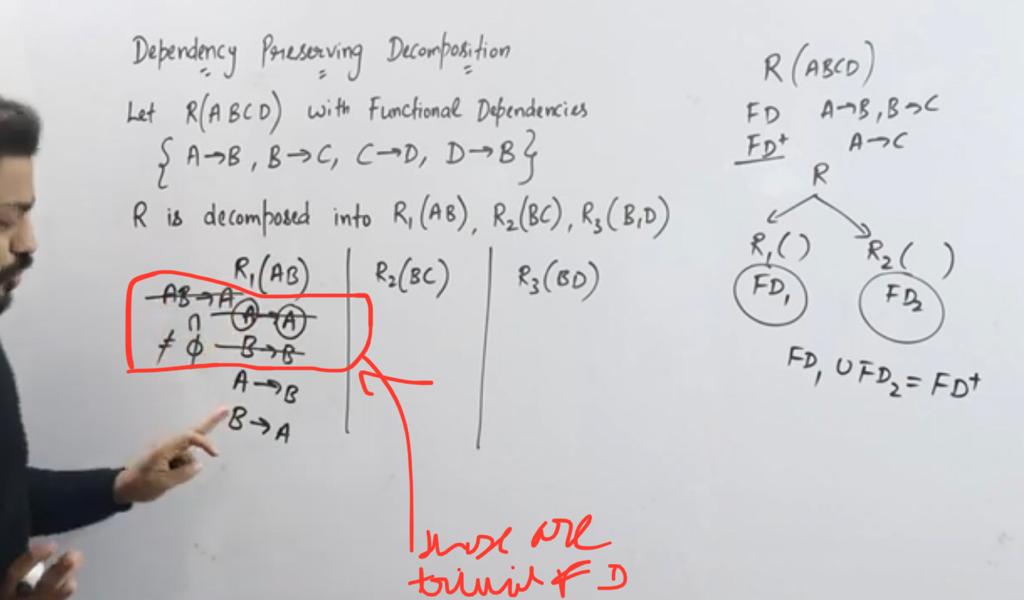 Dependency Preserving Decomposition
Let R(ABCD) with Functional Dependencies
{ A→B, B→C, C→D, D→B }
R is decomposed into R₁(AB), R₂(BC), R₃(B,D)
R₁(AB) R₂(BC) R₃(BD)
AB→A
∩ A→A
≠ ϕ B→B
A→B
B→A
are
FD
R(ABCD)
FD A→B, B→C
FD⁺ A→C
R
R₁( ) R₂( )
FD₁ FD₂
FD₁ ∪ FD₂ = FD⁺